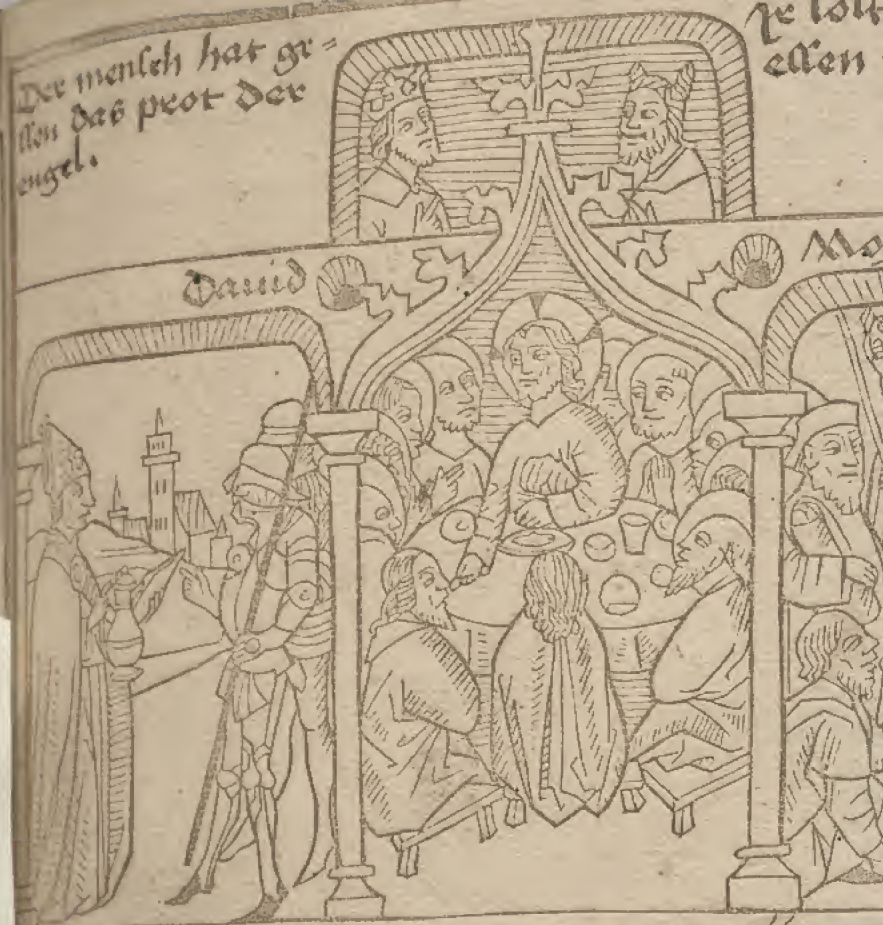 Der mensch hat ge=
ssen das prot der
engel.
ir solt
essen
Dauid
Mo